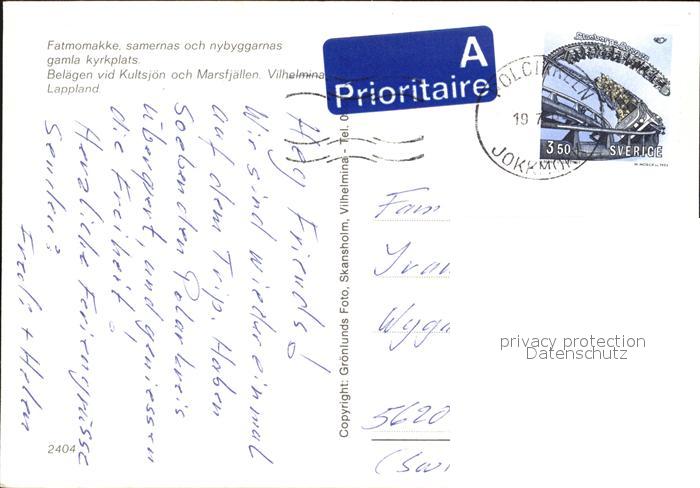 Fatmomakke, samernas och nybyggarnas
gamla kyrkplats.
Belägen vid Kultsjön och Marsfjällen. Vilhelmina
Lappland
A
Prioritaire
POLCIRKELN
JOKKMOKK
3 50 SVERIGE
Hej Friends!
Wir sind wieder einmal
auf dem Trip. Haben
soeben den Polarkreis
überquert, und geniessen
die Freiheit!
Herzliche Feriengrüsse
Senden:
Fredi + Helen
Copyright: Grönlunds Foto, Skansholm, Vilhelmina - Tel. 0
Fam
5620
(Swi
privacy protection
Datenschutz
2404